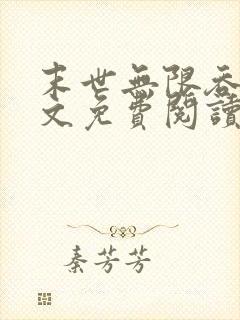 末世無限吞
文免費閱讀
秦芳芳